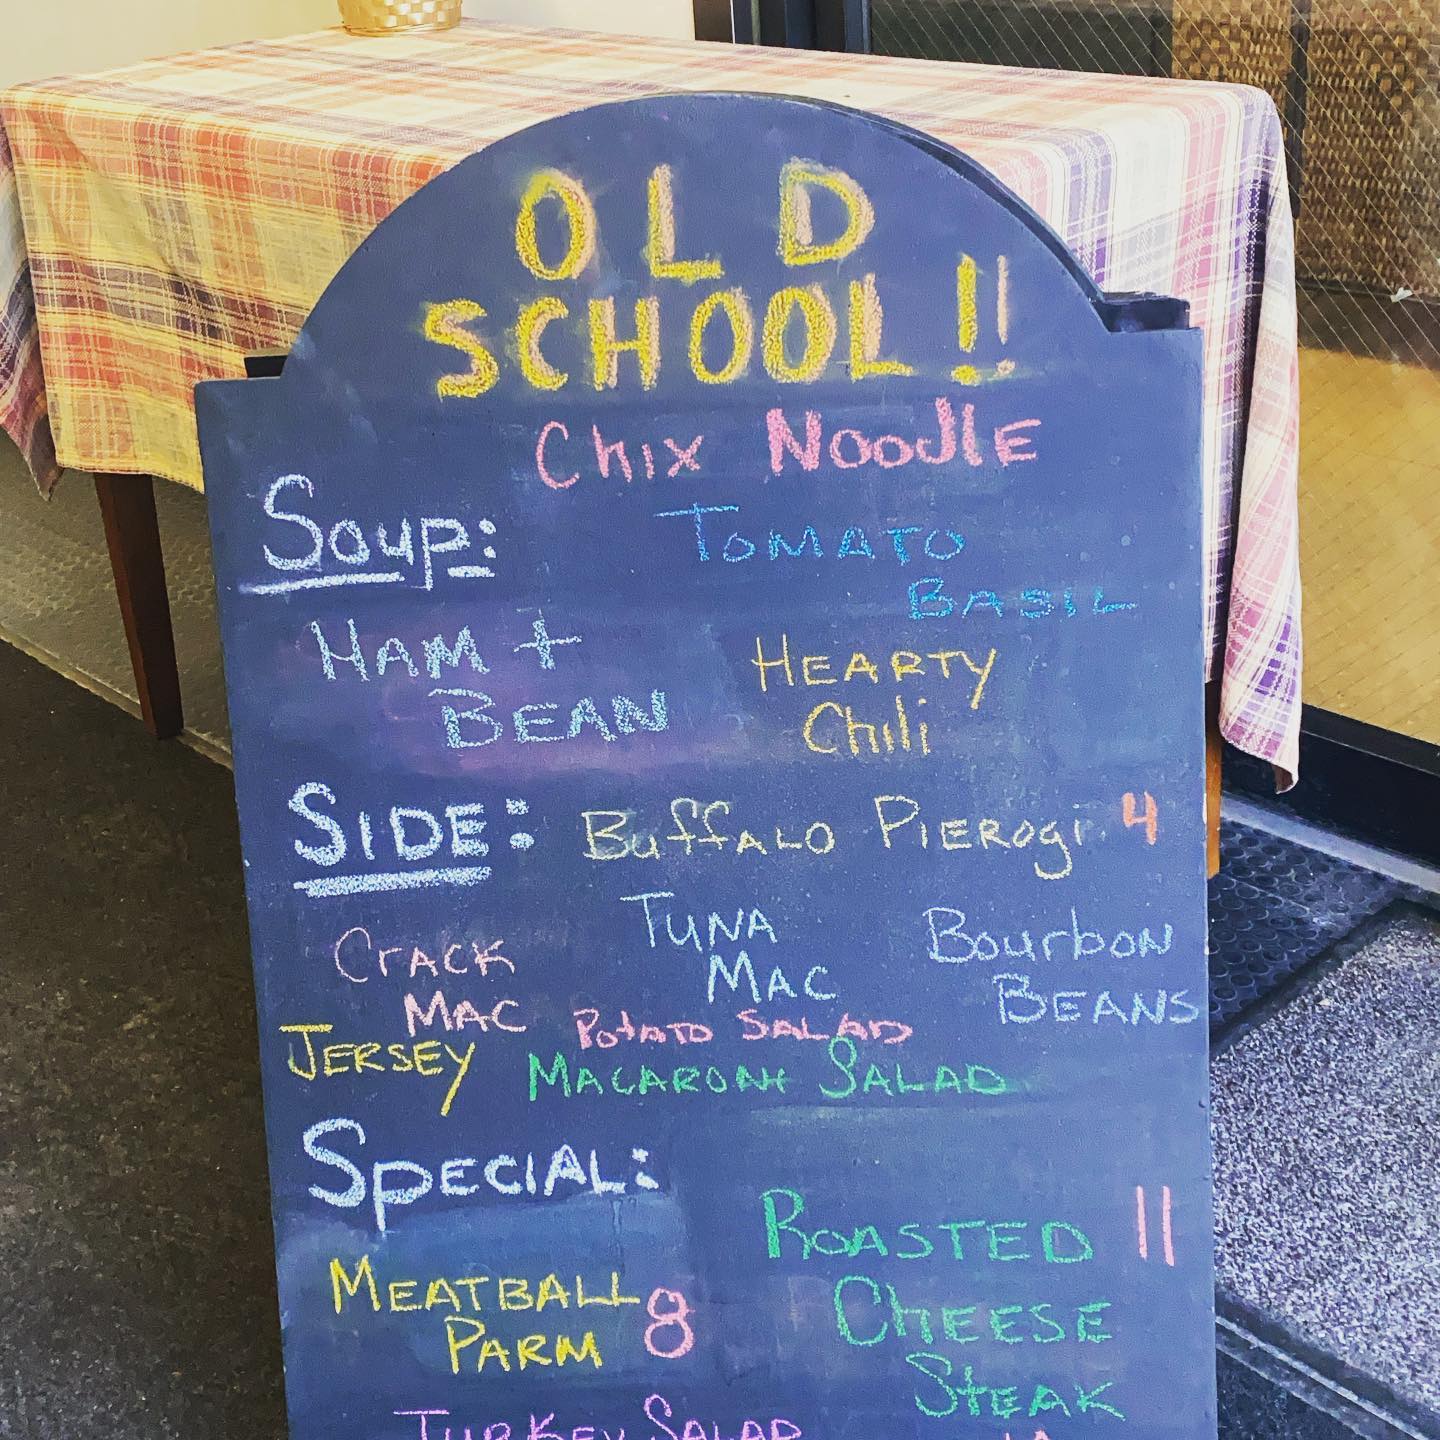 OLD
SCHOOL!!
Chix NOODlE
Soup:
TOMATO
BASIL
HAM +
BEAN
HEARTY
Chili
SIDE:
BuffALO PIEROgi 4
CrACK
MAC
TUNA
MAC
BOurbON
BEANS
POtATO SALAD
JERSEY
MACARONI SALAD
SPECIAL:
ROASTED 11
CHEESE
STEAK
MEATBALL
PARM 8
TURKEY SALAD